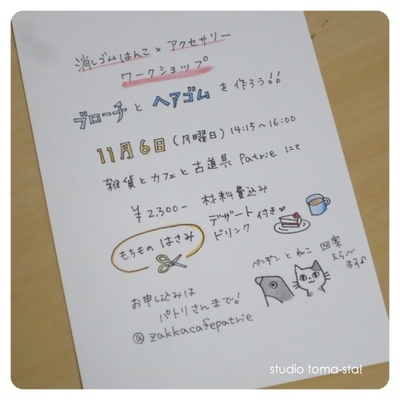 消しゴムはんこ×アクセサリー
ワークショップ
ブローチとヘアゴムを作ろう!!
11月6日(月曜日)14:15~16:00
雑貨とカフェと古道具 Patrie にて
¥2.300- 材料費込み
デザート
ドリンク 付き♥
もちもの はさみ
ペンギンとねこ 図案
えらべ
ます♪
お申し込みは
パトリさんまで!
@zakkacafepatrie
studio toma-sta!